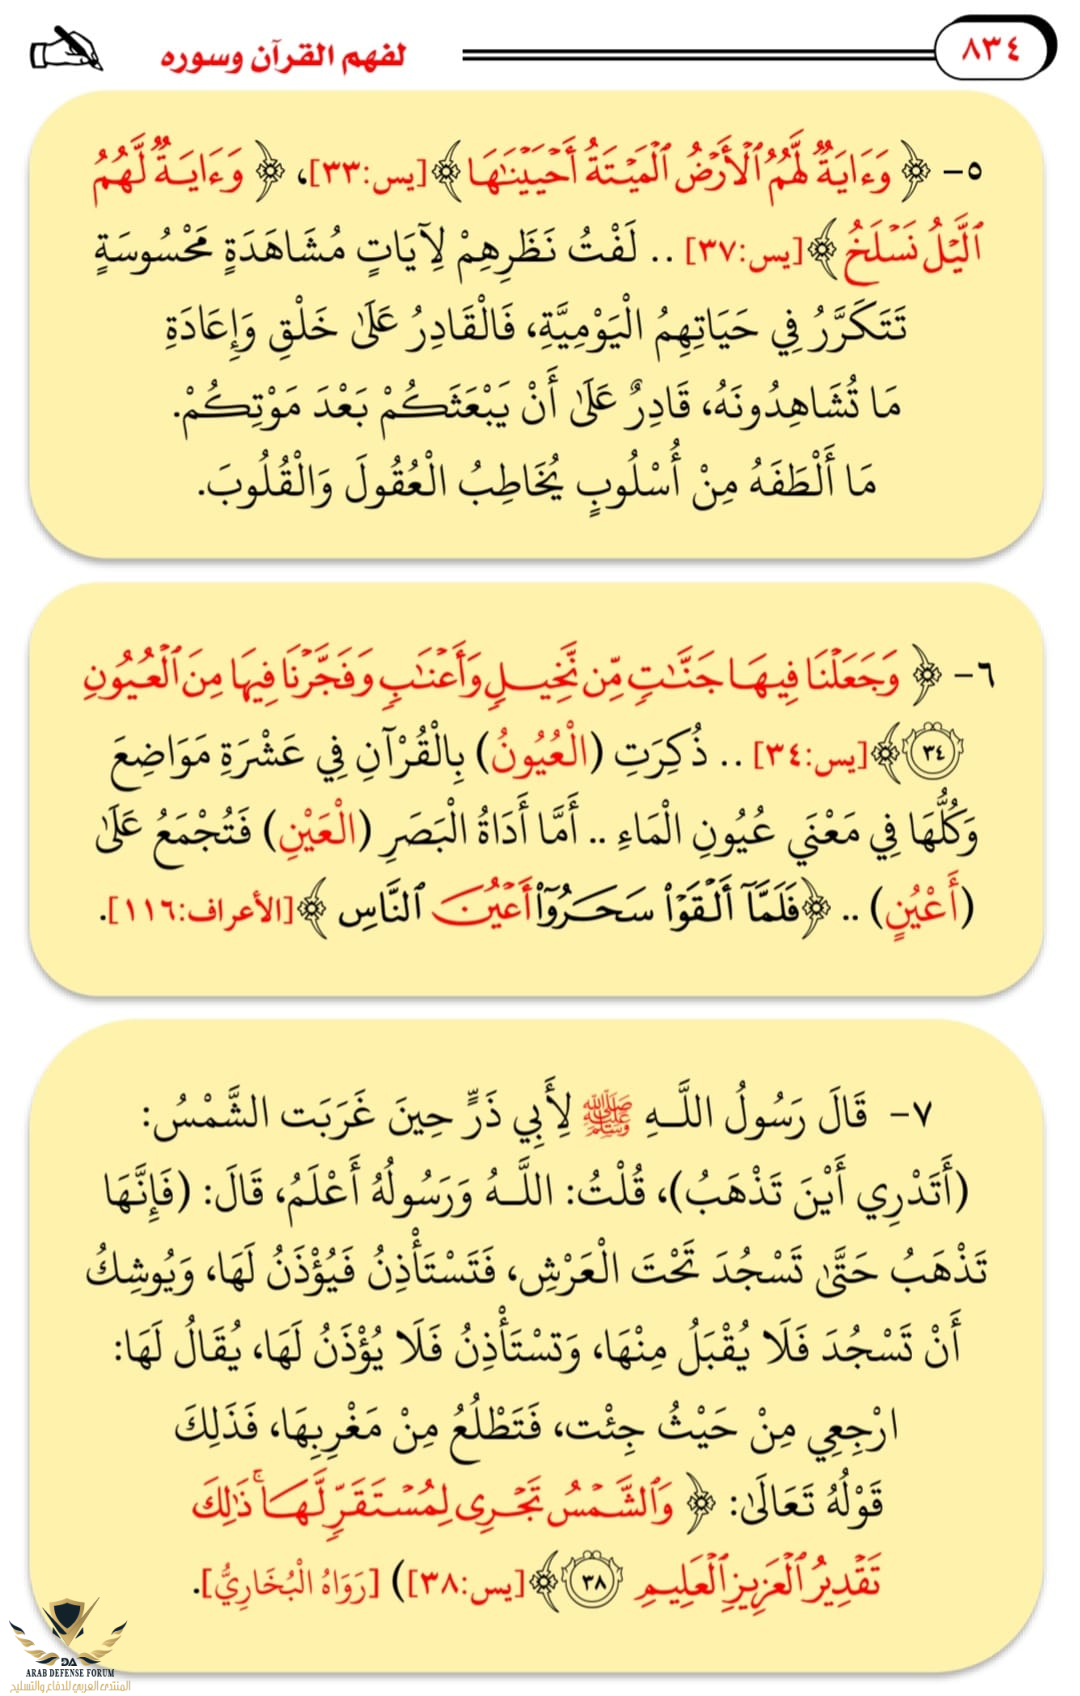 ٨٣٤
لفهم القرآن وسوره
٥- ﴿وَءَايَةٌ لَّهُمُ ٱلْأَرْضُ ٱلْمَيْتَةُ أَحْيَيْنَٰهَا﴾[يس:٣٣]، ﴿وَءَايَةٌ لَّهُمُ
ٱلَّيْلُ نَسْلَخُ﴾[يس:٣٧] .. لَفْتُ نَظَرِهِمْ لِآيَاتٍ مُشَاهَدَةٍ مَحْسُوسَةٍ
تَتَكَرَّرُ فِي حَيَاتِهِمُ الْيَوْمِيَّةِ، فَالْقَادِرُ عَلَىٰ خَلْقِ وَإِعَادَةِ
مَا تُشَاهِدُونَهُ، قَادِرٌ عَلَىٰ أَنْ يَبْعَثَكُمْ بَعْدَ مَوْتِكُمْ.
مَا أَلْطَفَهُ مِنْ أُسْلُوبٍ يُخَاطِبُ الْعُقُولَ وَالْقُلُوبَ.
٦- ﴿وَجَعَلْنَا فِيهَا جَنَّٰتٍ مِّن نَّخِيلٍ وَأَعْنَٰبٍ وَفَجَّرْنَا فِيهَا مِنَ ٱلْعُيُونِ
٣٤﴾[يس:٣٤] .. ذُكِرَتِ (الْعُيُونُ) بِالْقُرْآنِ فِي عَشْرَةِ مَوَاضِعَ
وَكُلُّهَا فِي مَعْنَي عُيُونِ الْمَاءِ .. أَمَّا أَدَاةُ الْبَصَرِ (الْعَيْنِ) فَتُجْمَعُ عَلَىٰ
(أَعْيُنٍ) .. ﴿فَلَمَّآ أَلْقَوْا۟ سَحَرُوٓا۟ أَعْيُنَ ٱلنَّاسِ﴾[الأعراف:١١٦].
٧- قَالَ رَسُولُ اللَّـهِ ﷺ لِأَبِي ذَرٍّ حِينَ غَرَبَت الشَّمْسُ:
(أَتَدْرِي أَيْنَ تَذْهَبُ)، قُلْتُ: اللَّـهُ وَرَسُولُهُ أَعْلَمُ، قَالَ: (فَإِنَّهَا
تَذْهَبُ حَتَّىٰ تَسْجُدَ تَحْتَ الْعَرْشِ، فَتَسْتَأْذِنُ فَيُؤْذَنُ لَهَا، وَيُوشِكُ
أَنْ تَسْجُدَ فَلَا يُقْبَلُ مِنْهَا، وَتسْتَأْذِنُ فَلَا يُؤْذَنُ لَهَا، يُقَالُ لَهَا:
ارْجِعِي مِنْ حَيْثُ جِئْت، فَتَطْلُعُ مِنْ مَغْرِبِهَا، فَذَلِكَ
قَوْلُهُ تَعَالَىٰ: ﴿وَٱلشَّمْسُ تَجْرِى لِمُسْتَقَرٍّ لَّهَا ۚ ذَٰلِكَ
تَقْدِيرُ ٱلْعَزِيزِ ٱلْعَلِيمِ ٣٨﴾[يس:٣٨]) [رَوَاهُ الْبُخَارِيُّ].
DA
ARAB DEFENSE FORUM
المنتدى العربي للدفاع والتسليح